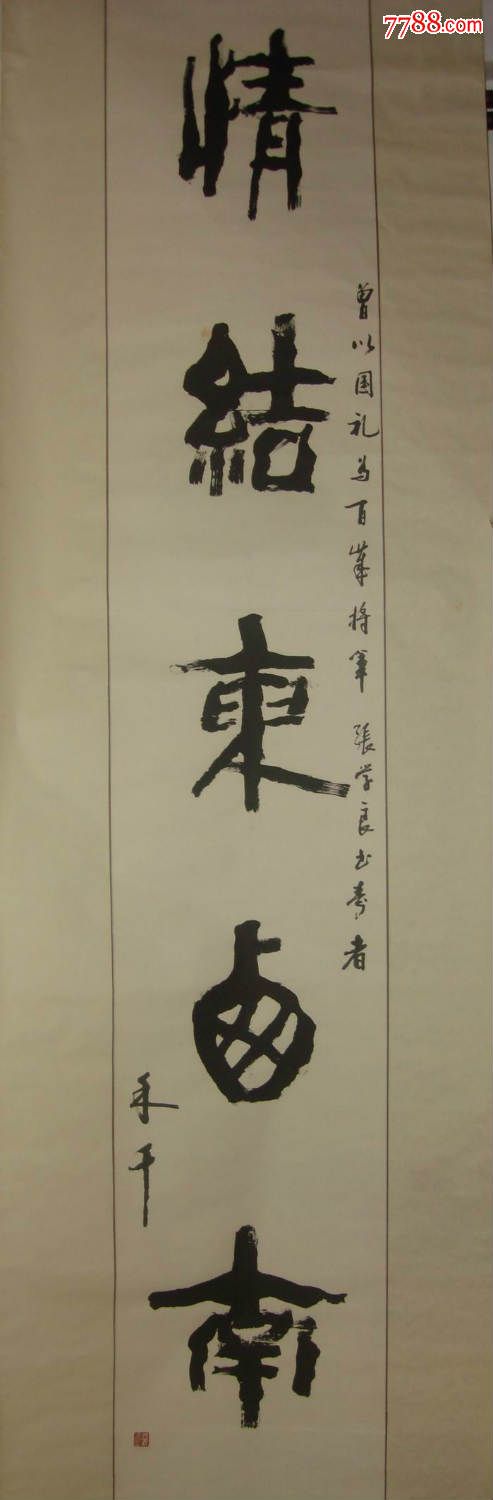 7788.com
情結東西南
曾以国礼为百歲将军 張学良书寿者
千